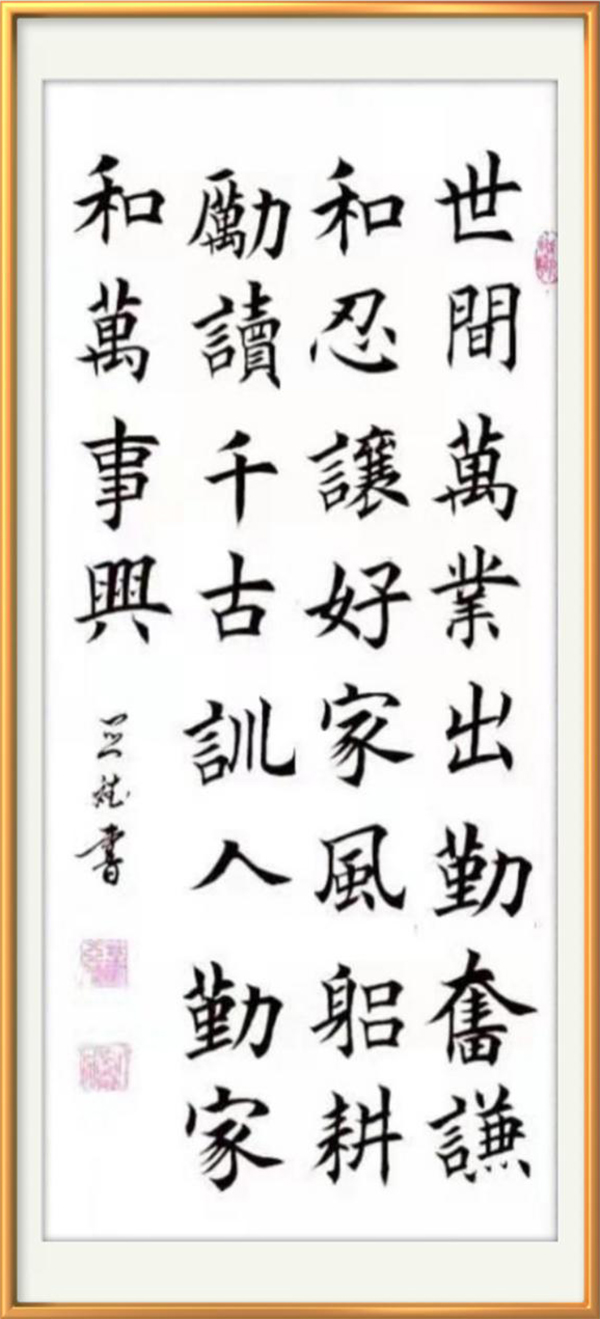 世間萬業出勤奮謙
和忍讓好家風躬耕
勵讀千古訓人勤家
和萬事興
書